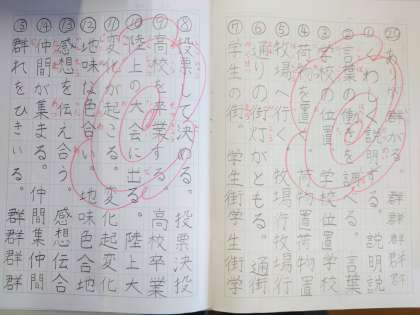 群群群群
①くわしく説明する。説明説
②言葉の働きを調べる。言葉
③学校の位置。学校位置学校
④荷を置く。荷物置
⑤牧場へ行く。牧場行牧場行
⑥通りの街灯がともる。通街
⑦学生の街。学生街学生街学
⑧投票して決める。投票決投
⑨高校を卒業する。高校卒業
⑩陸上の大会に出る。陸上大
⑪変化が起る。変化起変化
⑫地味な色合い。地味色合地
⑬感想を伝え合う。感想伝合
⑭仲間が集まる。仲間集仲間
⑮群れをひきいる。群群群群